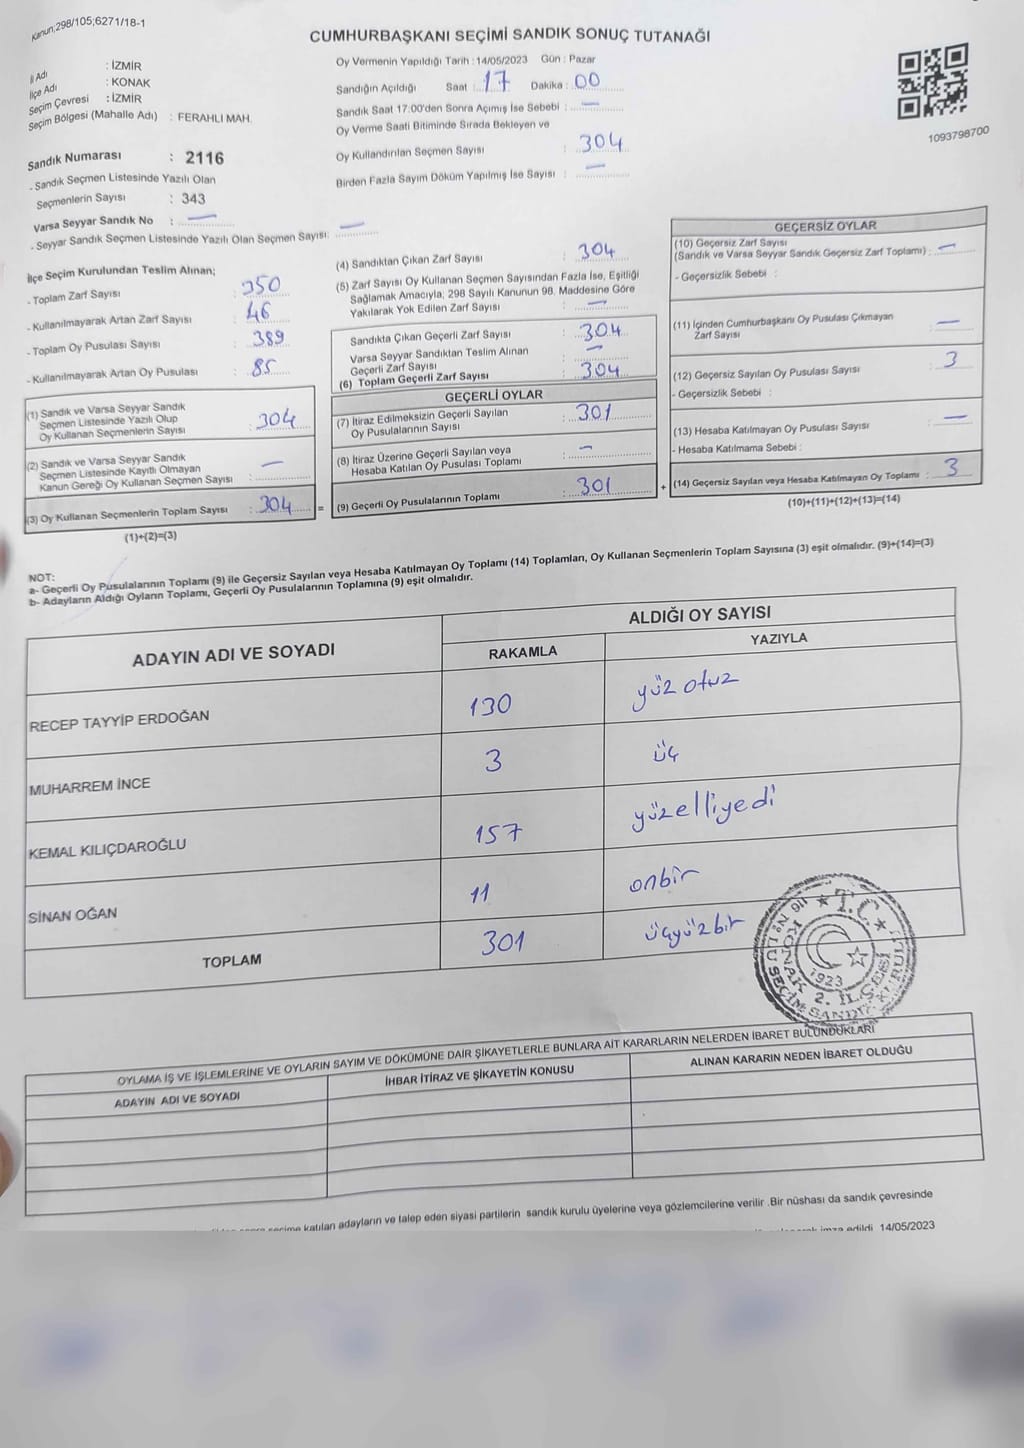 Kanun;298/105;6271/18-1
CUMHURBAŞKANI SEÇİMİ SANDIK SONUÇ TUTANAĞI
İl Adı : İZMİR
İlçe Adı : KONAK
Seçim Çevresi : İZMİR
Seçim Bölgesi (Mahalle Adı) : FERAHLI MAH.
Sandık Numarası : 2116
- Sandık Seçmen Listesinde Yazılı Olan
Seçmenlerin Sayısı : 343
Varsa Seyyar Sandık No : —
- Seyyar Sandık Seçmen Listesinde Yazılı Olan Seçmen Sayısı: —
Oy Vermenin Yapıldığı Tarih : 14/05/2023 Gün : Pazar
Sandığın Açıldığı Saat : 17 Dakika : 00
Sandık Saat 17:00'den Sonra Açımış İse Sebebi : —
Oy Verme Saati Bitiminde Sırada Bekleyen ve
Oy Kullandırılan Seçmen Sayısı : 304
Birden Fazla Sayım Döküm Yapılmış İse Sayısı : —
1093798700
İlçe Seçim Kurulundan Teslim Alınan;
- Toplam Zarf Sayısı : 350
- Kullanılmayarak Artan Zarf Sayısı : 46
- Toplam Oy Pusulası Sayısı : 389
- Kullanılmayarak Artan Oy Pusulası : 85
(1) Sandık ve Varsa Seyyar Sandık
Seçmen Listesinde Yazılı Olup
Oy Kullanan Seçmenlerin Sayısı : 304
(2) Sandık ve Varsa Seyyar Sandık
Seçmen Listesinde Kayıtlı Olmayan
Kanun Gereği Oy Kullanan Seçmen Sayısı : —
(3) Oy Kullanan Seçmenlerin Toplam Sayısı : 304 =
(1)+(2)=(3)
(4) Sandıktan Çıkan Zarf Sayısı : 304
(5) Zarf Sayısı Oy Kullanan Seçmen Sayısından Fazla İse, Eşitliği
Sağlamak Amacıyla; 298 Sayılı Kanunun 98. Maddesine Göre
Yakılarak Yok Edilen Zarf Sayısı : —
Sandıkta Çıkan Geçerli Zarf Sayısı : 304
Varsa Seyyar Sandıktan Teslim Alınan
Geçerli Zarf Sayısı : —
(6) Toplam Geçerli Zarf Sayısı : 304
GEÇERLİ OYLAR
(7) İtiraz Edilmeksizin Geçerli Sayılan
Oy Pusulalarının Sayısı : 301
(8) İtiraz Üzerine Geçerli Sayılan veya
Hesaba Katılan Oy Pusulası Toplamı : —
(9) Geçerli Oy Pusulalarının Toplamı : 301 +
GEÇERSİZ OYLAR
(10) Geçersiz Zarf Sayısı
(Sandık ve Varsa Seyyar Sandık Geçersiz Zarf Toplamı) : —
- Geçersizlik Sebebi :
(11) İçinden Cumhurbaşkanı Oy Pusulası Çıkmayan
Zarf Sayısı : —
(12) Geçersiz Sayılan Oy Pusulası Sayısı : 3
- Geçersizlik Sebebi :
(13) Hesaba Katılmayan Oy Pusulası Sayısı : —
- Hesaba Katılmama Sebebi :
(14) Geçersiz Sayılan veya Hesaba Katılmayan Oy Toplamı : 3
(10)+(11)+(12)+(13)=(14)
NOT:
a- Geçerli Oy Pusulalarının Toplamı (9) ile Geçersiz Sayılan veya Hesaba Katılmayan Oy Toplamı (14) Toplamları, Oy Kullanan Seçmenlerin Toplam Sayısına (3) eşit olmalıdır. (9)+(14)=(3)
b- Adayların Aldığı Oyların Toplamı, Geçerli Oy Pusulalarının Toplamına (9) eşit olmalıdır.
ADAYIN ADI VE SOYADI
ALDIĞI OY SAYISI
RAKAMLA YAZIYLA
RECEP TAYYİP ERDOĞAN 130 yüz otuz
MUHARREM İNCE 3 üç
KEMAL KILIÇDAROĞLU 157 yüzelliyedi
SİNAN OĞAN 11 onbir
TOPLAM 301 üçyüzbir
★ T.C. ★
KONAK 2. İLÇESİ
1923
OYLAMA İŞ VE İŞLEMLERİNE VE OYLARIN SAYIM VE DÖKÜMÜNE DAİR ŞİKAYETLERLE BUNLARA AİT KARARLARIN NELERDEN İBARET BULUNDUKLARI
ADAYIN ADI VE SOYADI İHBAR İTİRAZ VE ŞİKAYETİN KONUSU ALINAN KARARIN NEDEN İBARET OLDUĞU
seçime katılan adayların ve talep eden siyasi partilerin sandık kurulu üyelerine veya gözlemcilerine verilir .Bir nüshası da sandık çevresinde
imza edildi 14/05/2023